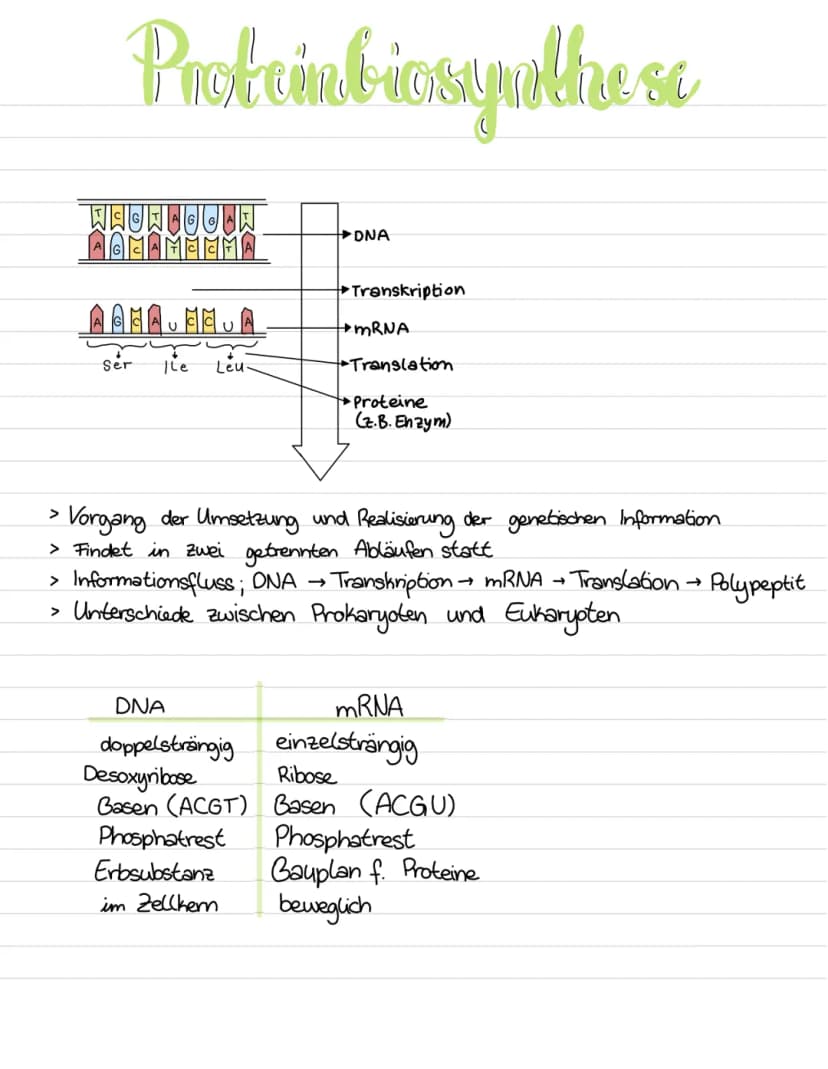 Proteinbiosynthese
T C G T A G G A T
A G C A T C C T A
DNA
Transkription
A G C A U C C U A
mRNA
Ser Ile Leu
Translation
Proteine
(z.B. Enzym)
> Vorgang der Umsetzung und Realisierung der genetischen Information
> Findet in zwei getrennten Abläufen statt
> Informationsfluss; DNA → Transkription → mRNA → Translation → Polypeptit
> Unterschiede zwischen Prokaryoten und Eukaryoten
DNA mRNA
doppelsträngig einzelsträngig
Desoxyribose Ribose
Basen (ACGT) Basen (ACGU)
Phosphatrest Phosphatrest
Erbsubstanz Bauplan f. Proteine
im Zellkern beweglich